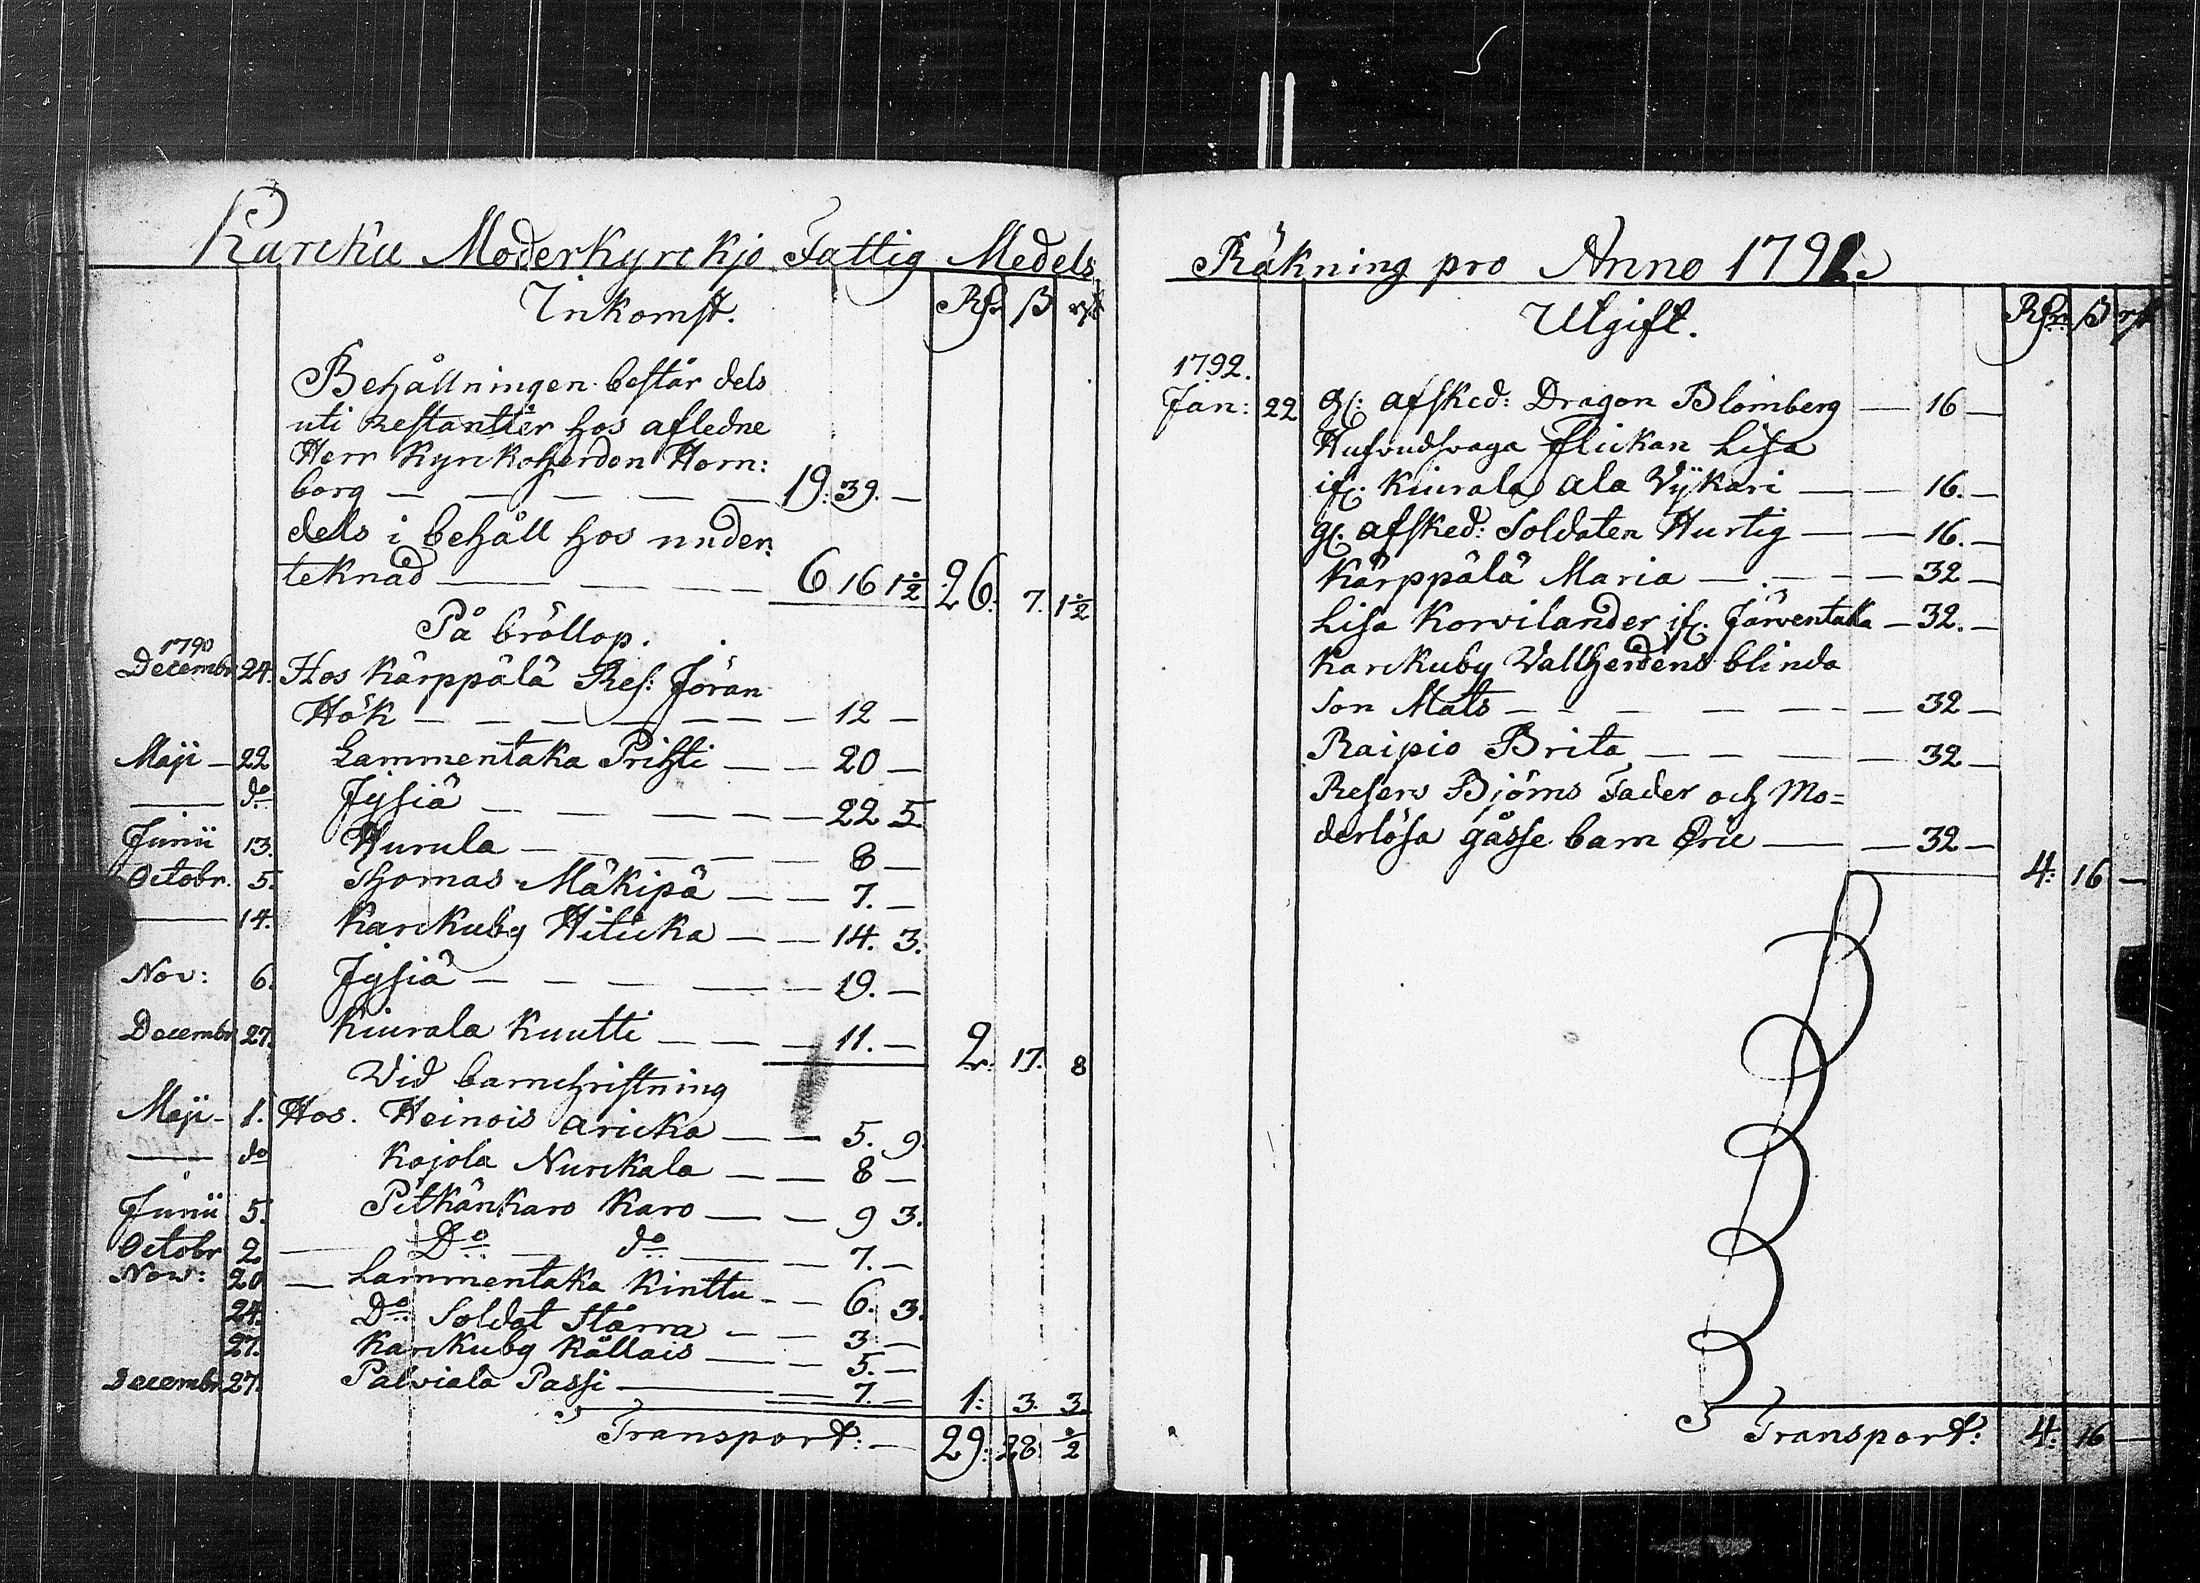 Karcku Moderkyrckjo Fattig Medels
Inkomst.
Rdr ß rst
Behållningen består dels
uti restantier hos afledne
Herr Kyrkoherden Horn:
borg — — — — — 19: 39. —
dels i behåll hos under:
teknad — — — — 6 16 1½ 26: 7. 1½
På bröllop.
1790
Decembr 24. Hos Kärppälä Res: Jöran
Hök — — — — — — 12 —
Maji — 22 Lammentaka Prihti — — 20 —
— do Jysiä — — — — — 22 5.
Junii 13. Hurula — — — — — 8 —
Octobr. 5. Thomas Mäkipä — — 7. —
— 14. Karckuby Hiticka — — 14. 3.
Nov: 6. Jysiä — — — — — 19. —
Decembr 27. Kiurala Kuutti — — — 11. — 2. 17. 8
Vid barnchristning
Maji — 1. Hos Heinois Aricka — — 5. 9.
— do Kojola Nurckala — — 8 —
Junii 5. Pitkänkaro Karo — — 9 3.
Octobr 2 — Do — do — — 7. —
Nov: 20 — Lammentaka Kinttu — — 6. 3.
24. Do Soldat Starra — — 3 —
27. Karckuby Källais — — 5. —
Decembr 27. Palviala Passi — — 7. — 1: 3. 3.
Transport: — 29: 28. ½
Räkning pro Anno 1791.
Utgift.
Rdr ß rst
1792.
Jan: 22 gl: afsked: Dragon Blomberg — 16 —
Hufvudsvaga flickan Lisa
ifr. Kiurala Ala Wÿkari — — 16. —
gl. afsked: Soldaten Hurtig — — 16. —
Kärppälä Maria — — — — 32 —
Lisa Korvilander ifr. Järventaka — 32. —
Karckuby Vallherdens blinda
son Mats — — — — — — 32 —
Raipio Brita — — — — — 32 —
Resers Björns Fader och Mo=
derlösa gåsse barn Eric — — 32 —
4: 16 —
Transport: 4: 16 —